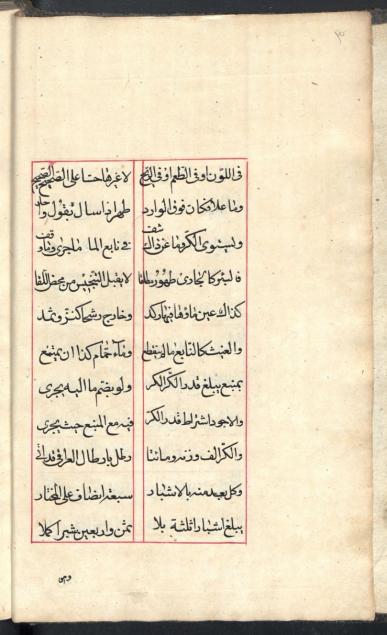 فى اللون او فى الطعم او فى الريح لا غيرها حتما على الصحيح الفصيح
وما علا فكان فوق الوارد طهر اذا سال بقول واحد
وليستوى الكر وما عن ذاك شف فى نابع الماء ما جرى وما وقف
فليس كالجارى طهور مطلقا لا يقبل التنجيس من محض اللقا
كذاك عين ماؤها فيها ركد وخارج رشحا كنز وثمد
والغيث كالنابع ما لم ينقطع وماء حمام كذا ان يمتنع
بمنبع يبلغ قدر الكر الكر ولو بضم ما اليه يجرى
والاجود اشتراط قدر الكر فيه مع المنبع حيث يجرى
والكر الف وزنه ومائتا رطل بارطال العراق قد اتى
وكل بعد منه بالاشبار سبعة انصاف على المختار
يبلغ اشبارا ثلثة بلا ثمن واربعين شبرا كملا